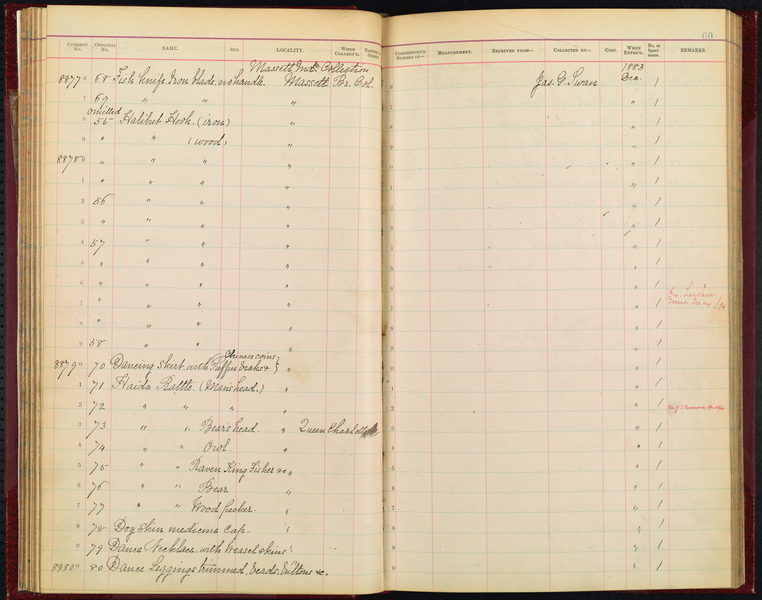 60
CURRENT No. ORIGINAL No. NAME. SEX. LOCALITY. WHEN COLLECT'D. MEASUREMENT. RECEIVED FROM— COLLECTED BY— COST. WHEN ENTER'D. No. of Speci-mens. REMARKS.
Massett Ind. Collection 1883
8877 68 Fish knife. Iron blade. no handle. Massett Br. Col. Jas. G. Swan Dec. 1
7 69 " " " " 1
omitted
8 55 Halibut Hook. (iron) " " 1
9 " " (wood) " " 1
8878 0 " " " " " 1
1 " " " " " 1
2 56 " " " " 1
3 " " " " " 1
4 57 " " " " 1
5 " " " " " 1
6 " " " " " 1
7 " " " " " 1
8 " " " " " 1
9 58 " " " " 1
Chinese coins
8879 0 70 Dancing Shirt with Puffin beaks & " " 1
1 71 Haida Rattle. (Man's head.) " " 1
2 72 " " " " " 1
3 73 " " Bear's head. " Queen Charlotte " 1
4 74 " " Owl. " " 1
5 75 " " Raven King Fisher &c " " 1
6 76 " " Bear " " 1
7 77 " " Wood pecker. " " 1
8 78 Dog Skin medicine Cap. " " 1
9 79 Dance Necklace with weasel skins " " 1
8880 0 80 Dance Leggings trimmed, beads, buttons &c. " 1